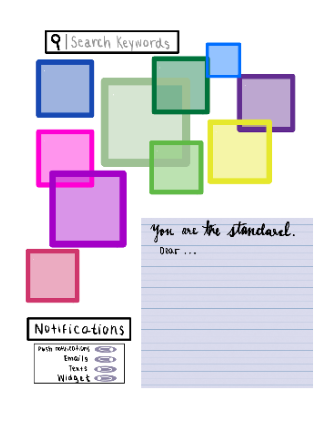 Search Keywords
You are the standard.
Dear ...
Notifications
Push notifications
Emails
Texts
Widget